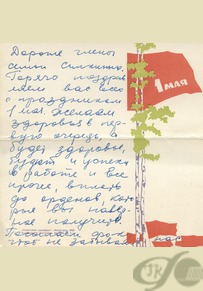 Дорогие члены
семьи
Горячо поздрав
ляем вас всех
с праздником
1 мая. Желаем
здоровья в пер
вую очередь, а
будет здоровье,
будет и успехи
в работе и все
прочее, вплоть
до орденов, кото
рые вы навер
ное получите.
не забывай
1 МАЯ